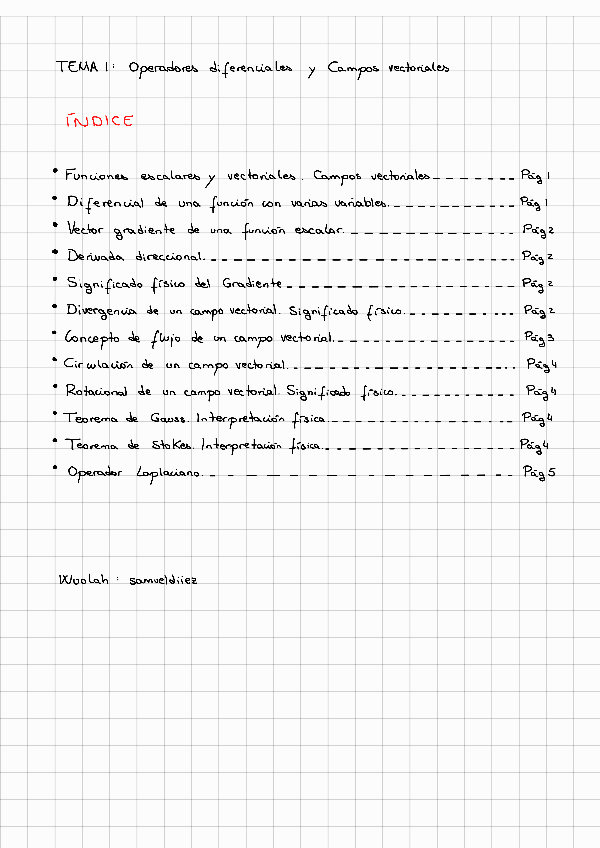 TEMA 1: Operadores diferenciales y Campos vectoriales
ÍNDICE
• Funciones escalares y vectoriales. Campos vectoriales--------Pág 1
• Diferencial de una función con varias variables.----------Pág 1
• Vector gradiente de una función escalar.--------------Pág 2
• Derivada direccional.------------------------Pág 2
• Significado físico del Gradiente------------------Pág 2
• Divergencia de un campo vectorial. Significado físico.---------Pág 2
• Concepto de flujo de un campo vectorial.--------------Pág 3
• Circulación de un campo vectorial.------------------Pág 4
• Rotacional de un campo vectorial. Significado físico.---------Pág 4
• Teorema de Gauss. Interpretación física.--------------Pág 4
• Teorema de Stokes. Interpretación física.--------------Pág 4
• Operador Laplaciano.------------------------Pág 5
Wuolah : samueldiiez